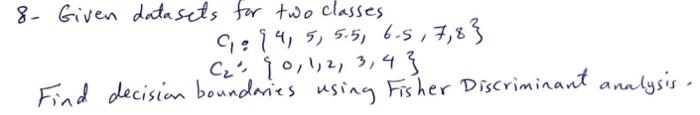 8- Given datasets for two classes
C₁: {4, 5, 5.5, 6.5, 7, 8}
C₂: {0, 1, 2, 3, 4}
Find decision boundaries using Fisher Discriminant analysis.